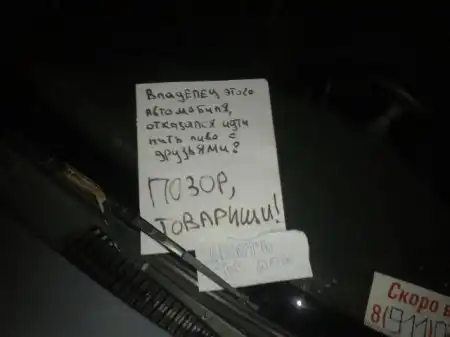 Владелец этого
автомобиля,
отказался идти
пить пиво с
друзьями?
ПОЗОР,
ТОВАРИЩИ!
Скоро в
8(911)0